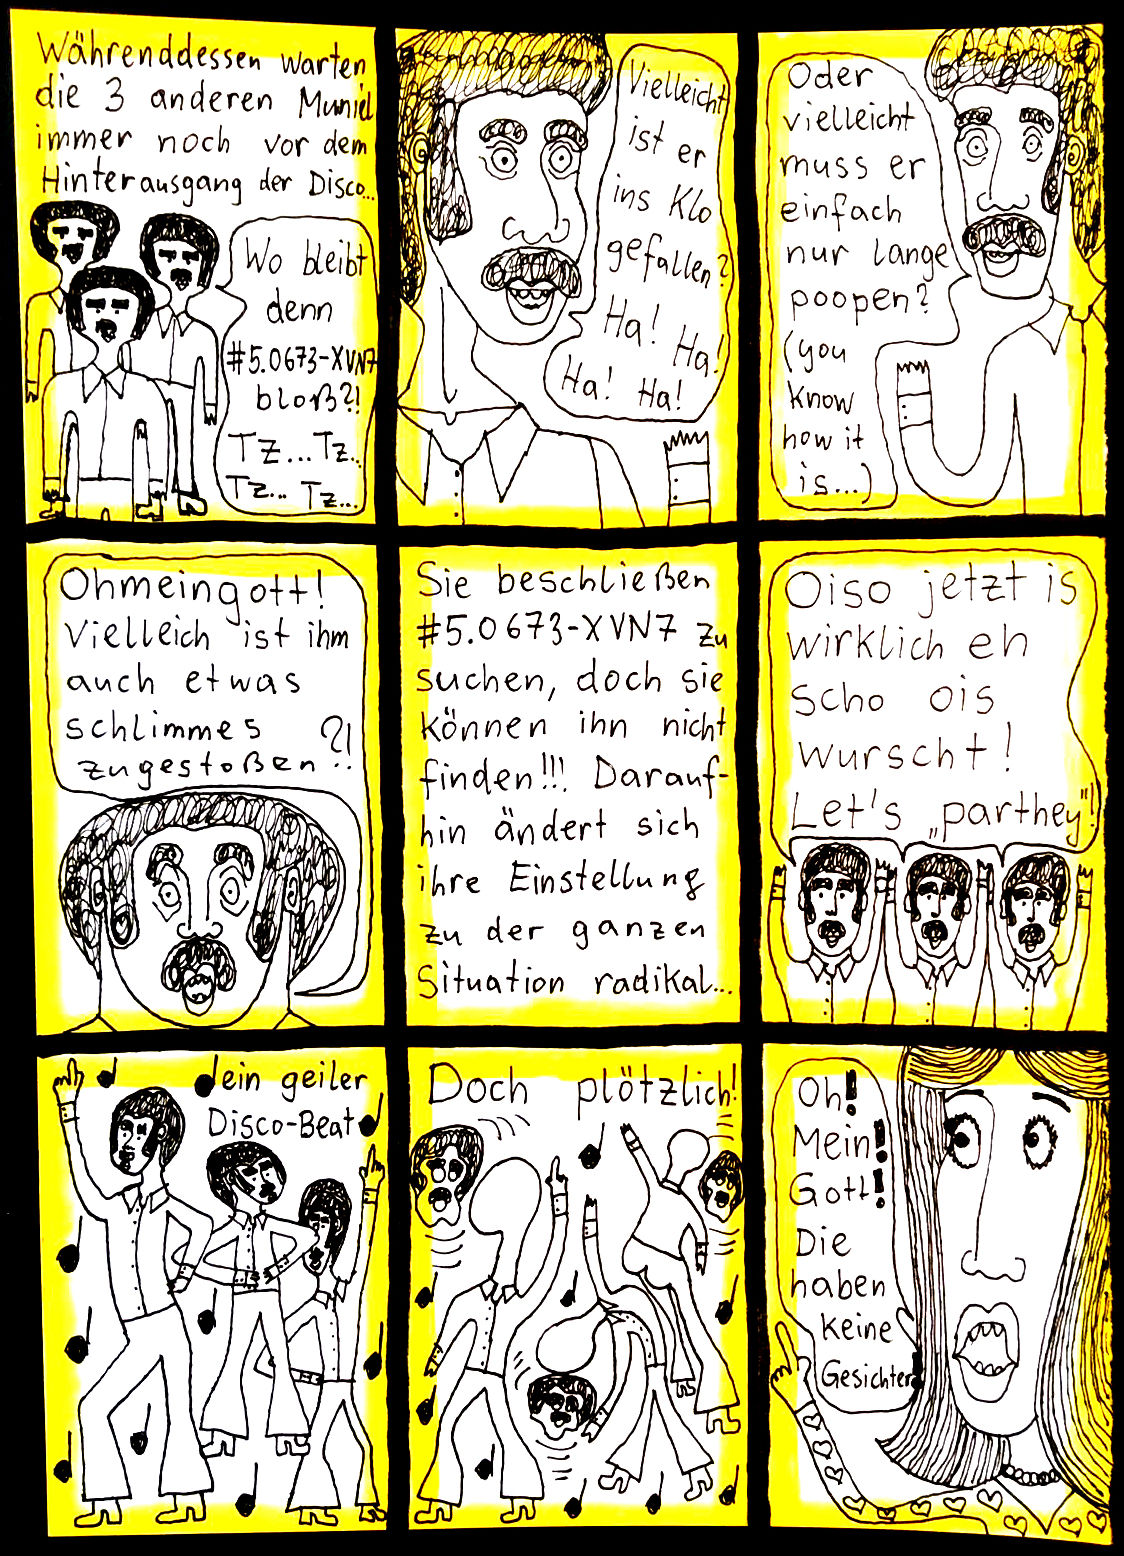 Währenddessen warten
die 3 anderen Muniel
immer noch vor dem
Hinterausgang der Disco...
Wo bleibt
denn
#5.0673-XVN7
bloß?!
Tz...Tz..
Tz... Tz...
Vielleicht
ist er
ins Klo
gefallen?
Ha! Ha!
Ha! Ha!
Oder
vielleicht
muss er
einfach
nur lange
poopen?
(you
know
how it
is...)
Ohmeingott!
Vielleich ist ihm
auch etwas
schlimmes
zugestoßen?!
Sie beschließen
#5.0673-XVN7 zu
suchen, doch sie
können ihn nicht
finden!!! Darauf-
hin ändert sich
ihre Einstellung
zu der ganzen
Situation radikal...
Oiso jetzt is
wirklich eh
scho ois
wurscht!
Let's „parthey"!
ein geiler
Disco-Beat
Doch plötzlich!
Oh!
Mein!
Gott!
Die
haben
keine
Gesichter!